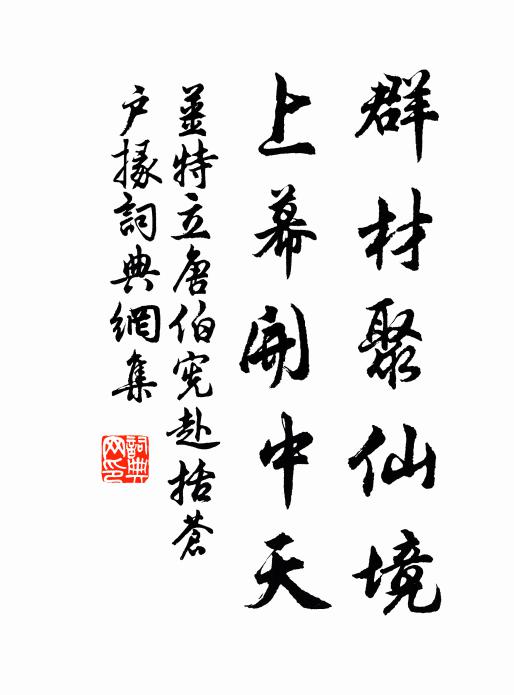 群材聚仙境
上幕開中天
姜特立唐伯憲赴括蒼
户掾詞典網集
詞典网印